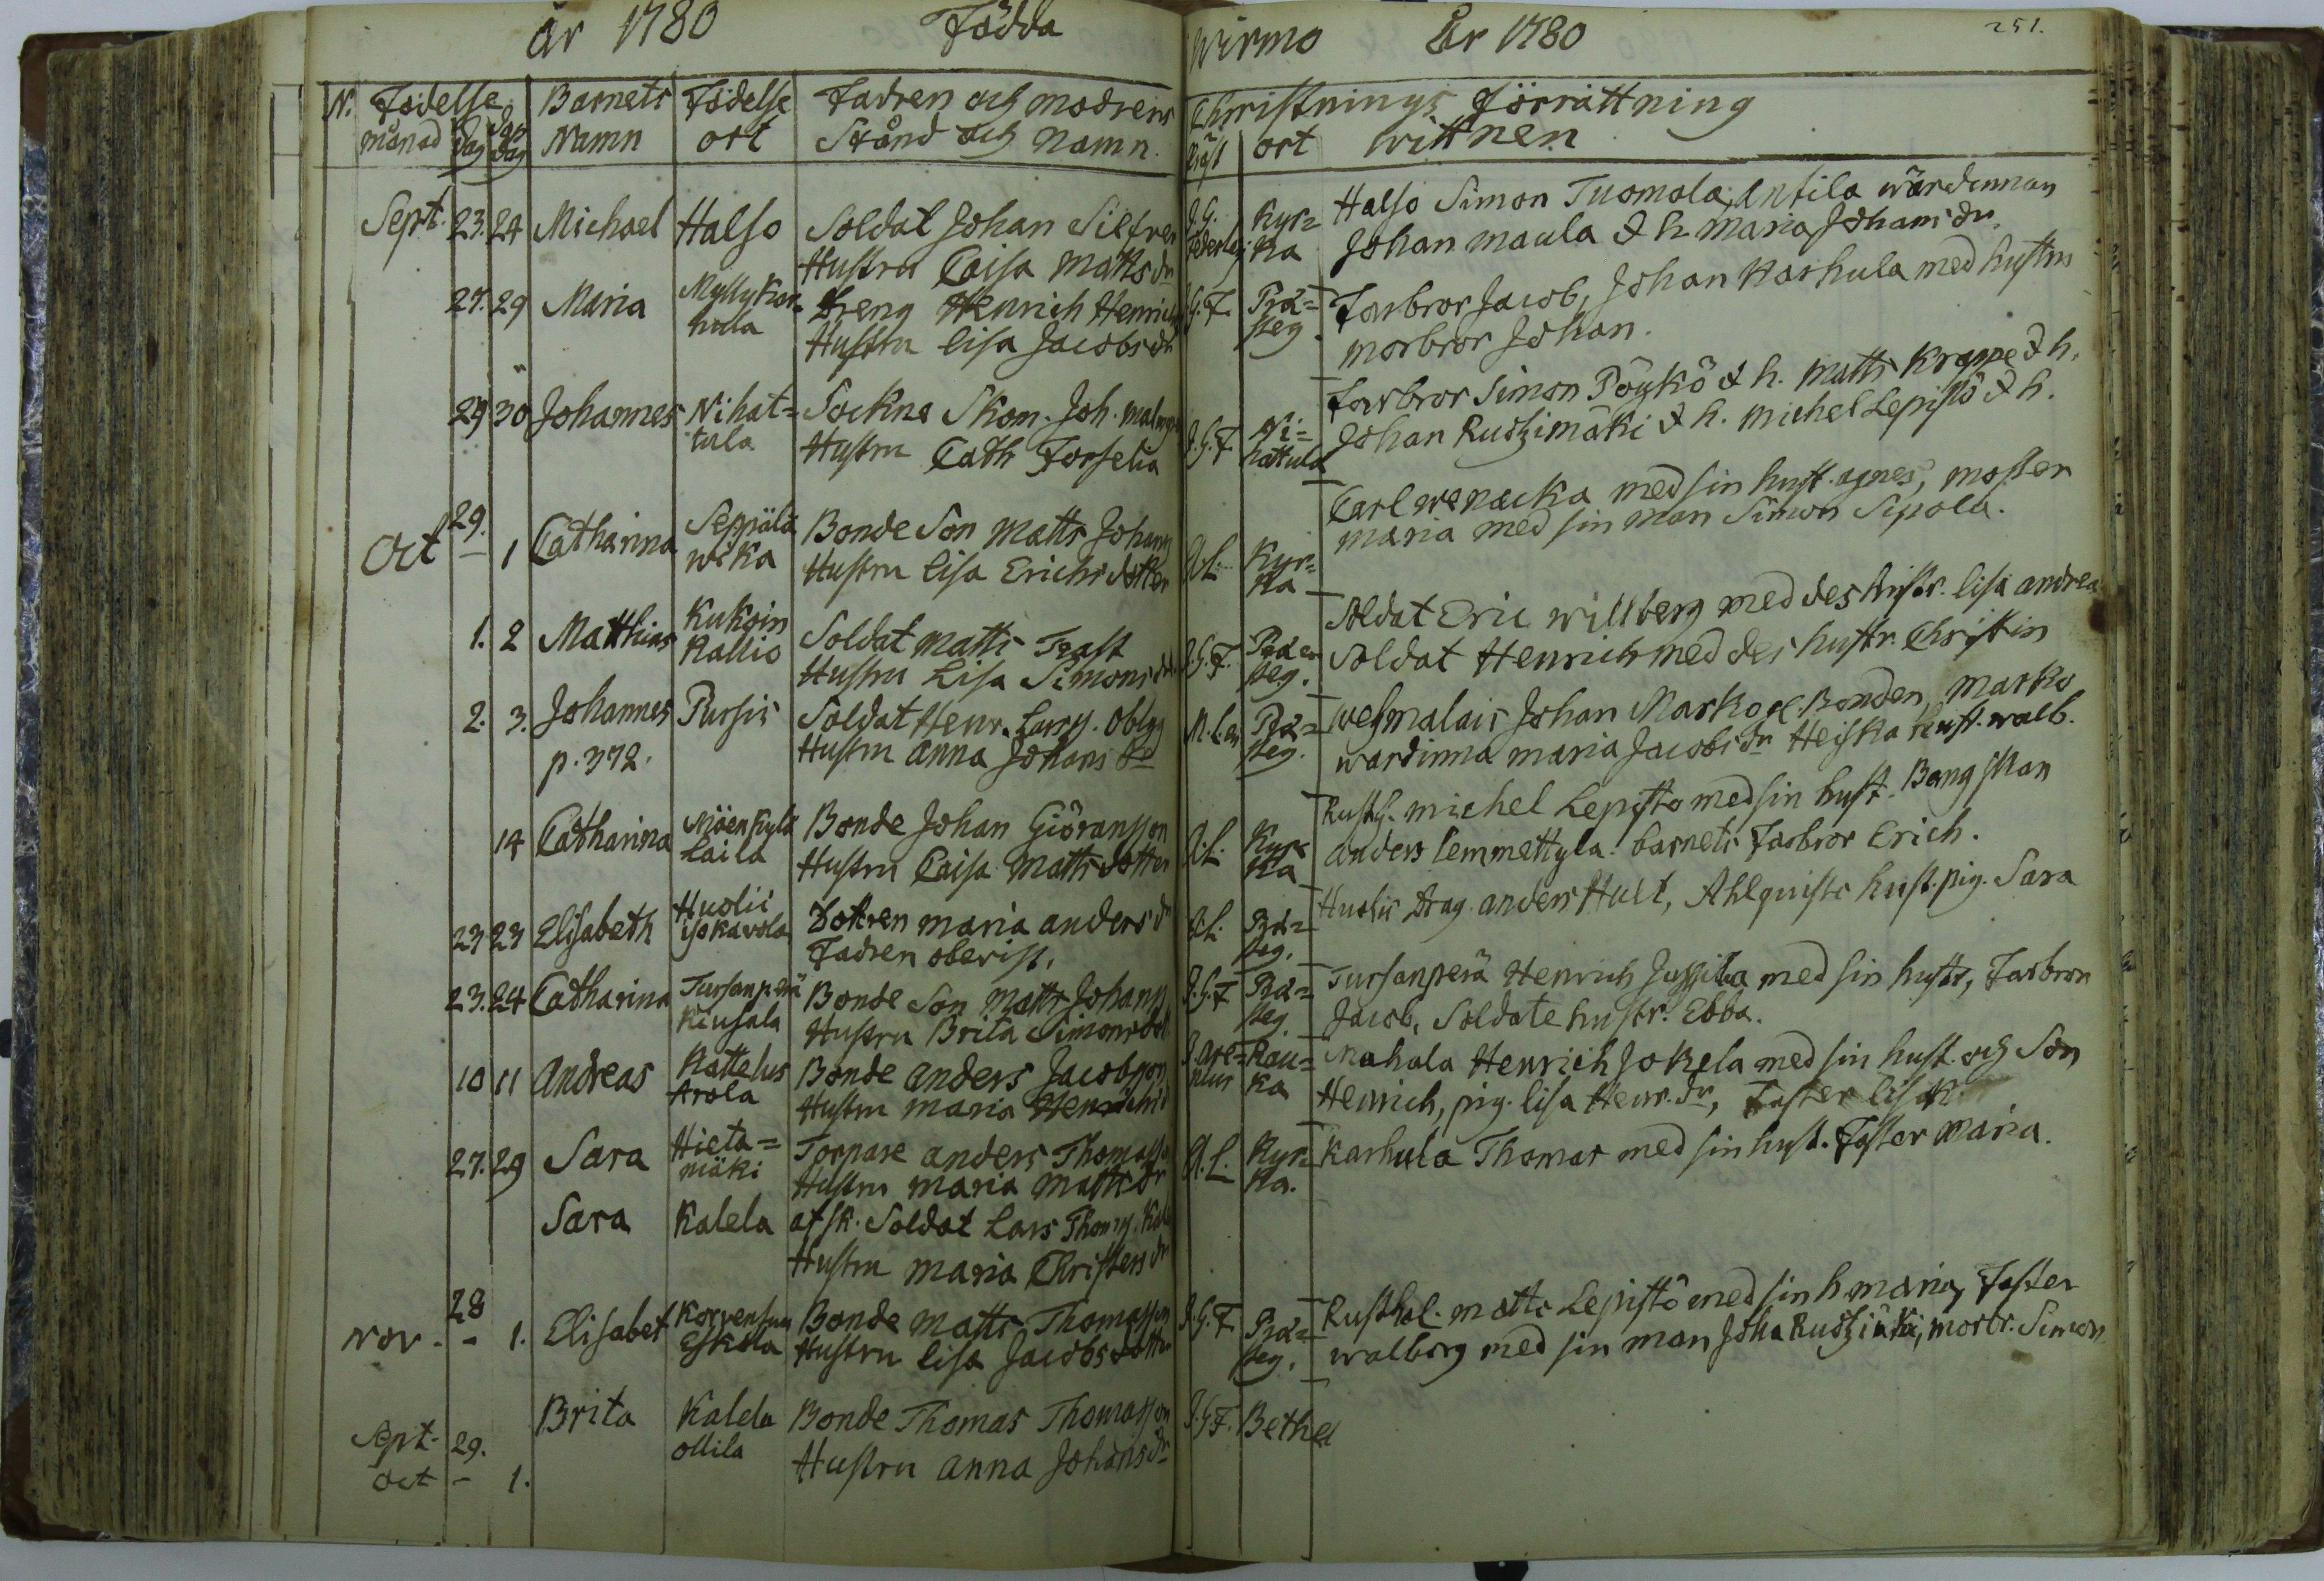 år 1780 Födda
Wirmo År 1780 251.
N. Födelse Barnets Födelse Fadren och modrens
månad dag Namn ort Stånd och Namn.
Christnings förrättning
Präst ort wittnen
Sept. 23. 24 Michael Halso Soldat Johan Silfver
Hustru Caisa Matts dr
J.G. Federley Kyr=
ka
Halso Simon Tuomola, Antila wärdinnan
Johan Maula & h. Maria Johans dr.
27. 29 Maria Myllykar=
hula
Dreng Henrich Henrichs
Hustru Lisa Jacobs dr
J.G.F. Prä=
steg
Farbror Jacob, Johan Karhula med hustru
morbror Johan.
29 30 Johannes Nihat=
tula
Sockne Skom. Joh. Malmgr
Hustru Cath Forselia
J.G.F. Ni=
hattula
Farbror Simon Pöykö & h. Matts Krappe & h.
Johan Rustimäki & h. Michel Lepistö & h.
29.
Oct – 1 Catharina Seppälä
wcka
Bonde Son Matts Johanss
Hustru Lisa Erichs dotter
A.L. Kyr=
ka
Carl wenacka med sin hust. agnes, moster
maria med sin man Simon Sipola.
1. 2 Matthias Kukoin
Kallio
Soldat Matts Trast
Hustru Lisa Simons dr
J.G.F. Präe
steg.
Soldat Eric Willberg med des hustr. Lisa andrea
Soldat Henrich med des hustr. Christin
2. 3. Johannes Pursis
p. 372.
Soldat Henr. Larss. Oblyg
Hustru Anna Johans dr
M.L.en Prä=
steg.
wehmalais Johan Marko & Bonden, Marko
wärdinna Maria Jacobs dr Heiska hust. walb.
14 Catharina Mäenkylä
Laila
Bonde Johan Giöransson
Hustru Caisa Matts dotter
A.L. Kyr
ka
Rusth. Michel Lepisto med sin hust. Bang man
anders Lemmettyla. barnets Farbror Erich.
23 23 Elisabeth Huolis
isokarola
Dottren Maria anders dr
Fadren oberist.
A.L. Prä=
steg.
Huolis Drag. anders Hult, Ahlquists hust. pig. Sara
23. 24 Catharina Tursanperä
Kiusala
Bonde Son Matts Johanss
Hustru Brita Simons dot
J.G.F Prä=
steg.
Tursanperä Henrich Jussila med sin hustr, Farbron
Jacob, Soldate hustr. Ebba.
10 11 Andreas Kattelus
Arola
Bonde anders Jacobsson
Hustru Maria Henrichs
J. are=
nius Kau=
ka
Mahala Henrich Jokela med sin hust. och Son
Henrich, pig. Lisa Henr. dr, Faster Lisa K.
27. 29 Sara Hieta=
mäki
Torpare anders Thomasso
Hustru Maria Matts dr
A.L. Kyr=
ka.
Karhula Thomas med sin hust. Faster Maria.
Sara Kalela afsk. Soldat Lars Thoms. Kal
Hustru Maria Christers dr
28
Nov. – 1. Elisabet Korvensuu
Eskola
Bonde Matts Thomasson
Hustru Lisa Jacobs dotter
J.G.F. Prä=
steg.
Rusthol. Matts Lepistö med sin h Maria, Faster
walborg med sin man Joha Rustimäki, morbr. Simon
Brita Kalela
ollila
Bonde Thomas Thomasson
Hustru Anna Johans dr
J.G.F. Bethel
Sept. 29.
Oct – 1.